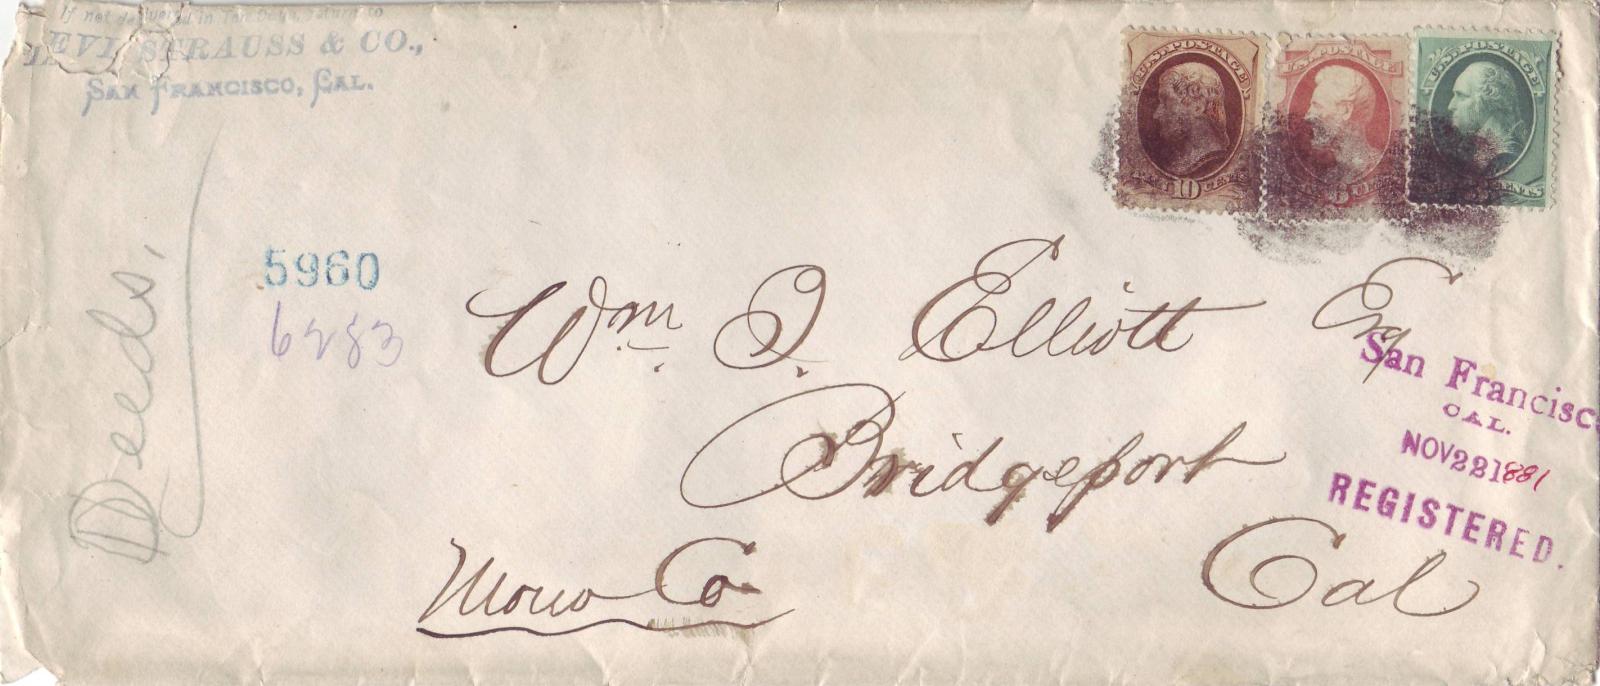 If not delivered in Ten Days, return to
LEVI STRAUSS & CO.,
SAN FRANCISCO, CAL.
U.S. POSTAGE
10 CENTS
U.S. POSTAGE
6
U.S. POSTAGE
3 CENTS
5960
6283
Deeds,
Wm. I. Elliott Esq
Bridgeport
Mono Co
Cal
San Francisco
CAL.
NOV 22 1881
REGISTERED.